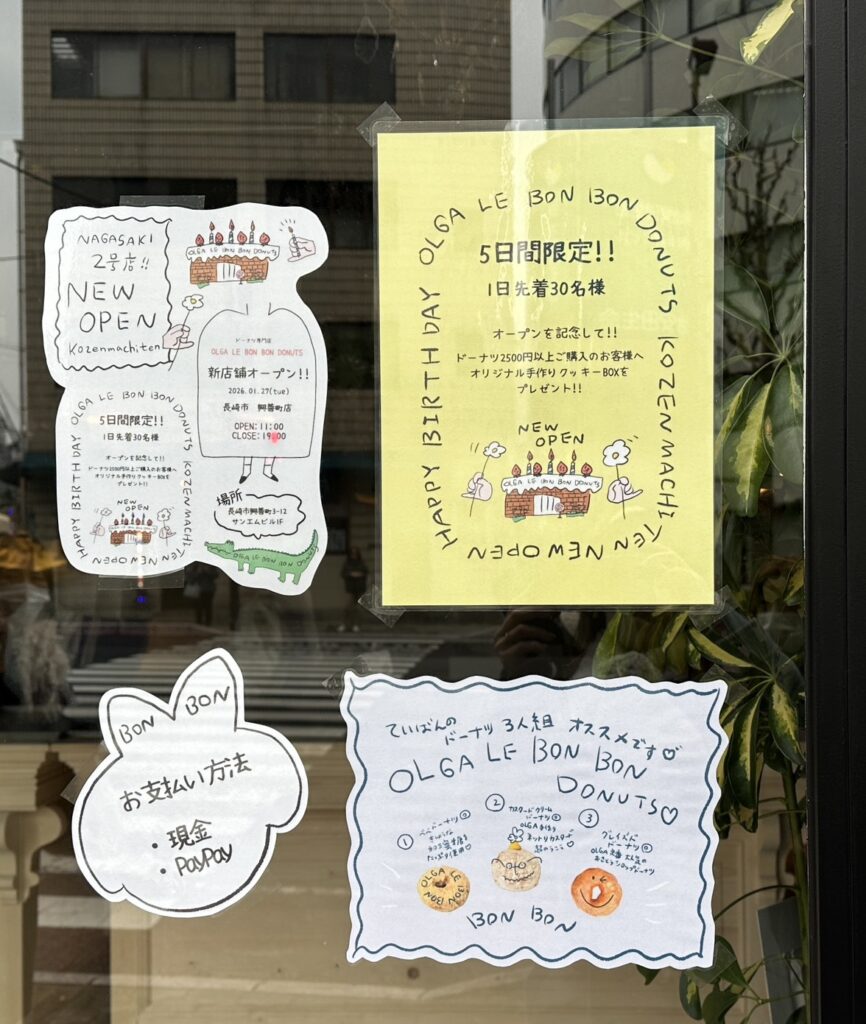 NAGASAKI
2号店!!
NEW
OPEN
Kozenmachiten
OLGA LE BON BON DONUTS
ドーナツ専門店
OLGA LE BON BON DONUTS
新店舗オープン!!
2026.01.27(tue)
長崎市 興善町店
OPEN:11:00
CLOSE:19:00
場所
長崎市興善町3-12
サンエムビル1F
OLGA LE BON BON DONUTS
HAPPY BIRTHDAY OLGA LE BON BON DONUTS KOZENMACHI TEN NEW OPEN
5日間限定!!
1日先着30名様
オープンを記念して!!
ドーナツ2500円以上ご購入のお客様へ
オリジナル手作りクッキーBOXを
プレゼント!!
NEW
OPEN
HAPPY BIRTHDAY OLGA LE BON BON DONUTS KOZENMACHI TEN NEW OPEN
5日間限定!!
1日先着30名様
オープンを記念して!!
ドーナツ2500円以上ご購入のお客様へ
オリジナル手作りクッキーBOXを
プレゼント!!
NEW
OPEN
OLGA LE BON BON DONUTS
BON BON
お支払い方法
・現金
・PayPay
ていばんの
ドーナツ 3人組 オススメです♡
OLGA LE BON BON
DONUTS♡
①
ドーナツ
たっぷり使用♡
OLGA LE BON BON
②
カスタードクリーム
ドーナツ
OLGA手作り
③
グレイズド
ドーナツ
BON BON